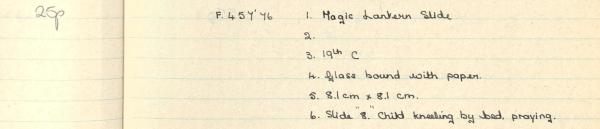 25p
F. 457'76 1. Magic Lantern Slide
2.
3. 19th C
4. Glass bound with paper.
5. 8.1 cm x 8.1 cm.
6. Slide "8." Child kneeling by bed, praying.